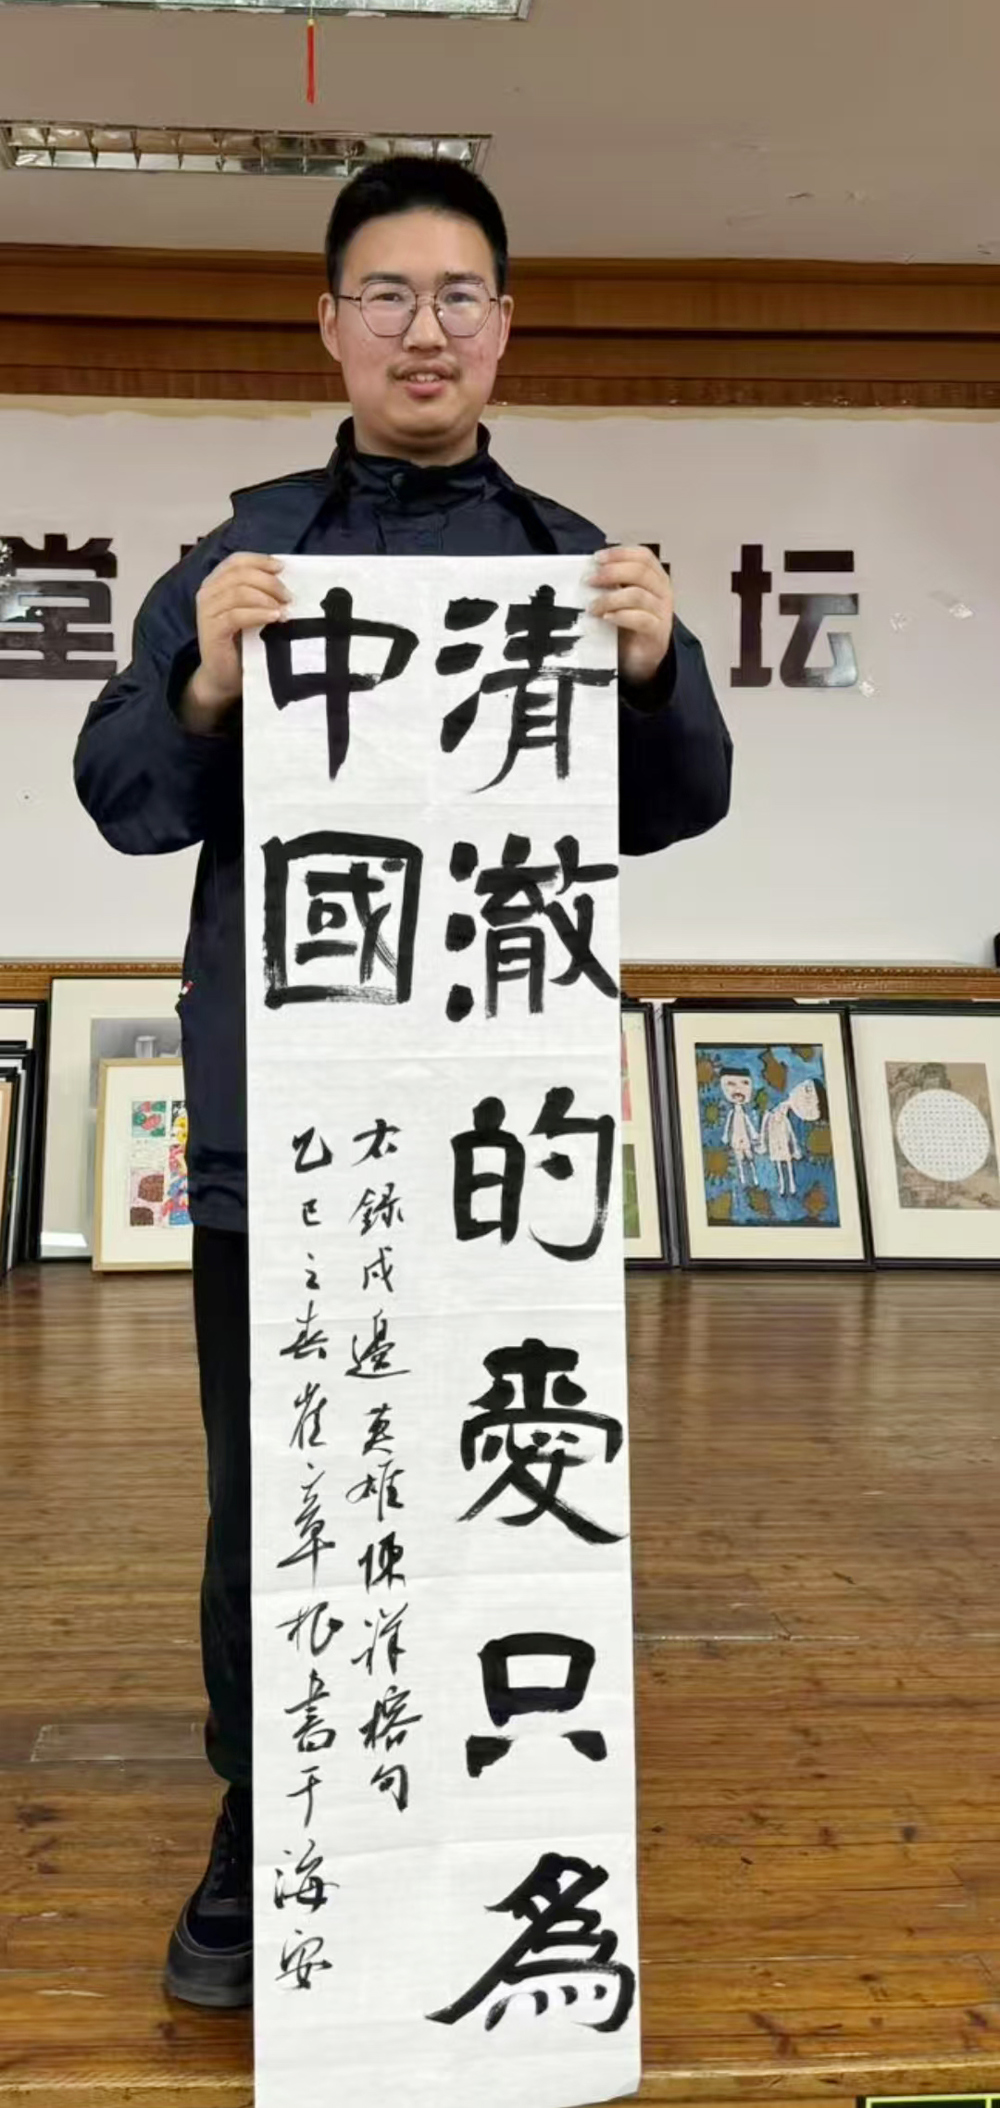 清澈的愛只為
中國
右録戍邊英雄陳祥榕句
乙巳之春崔章根書于海安
堂
坛